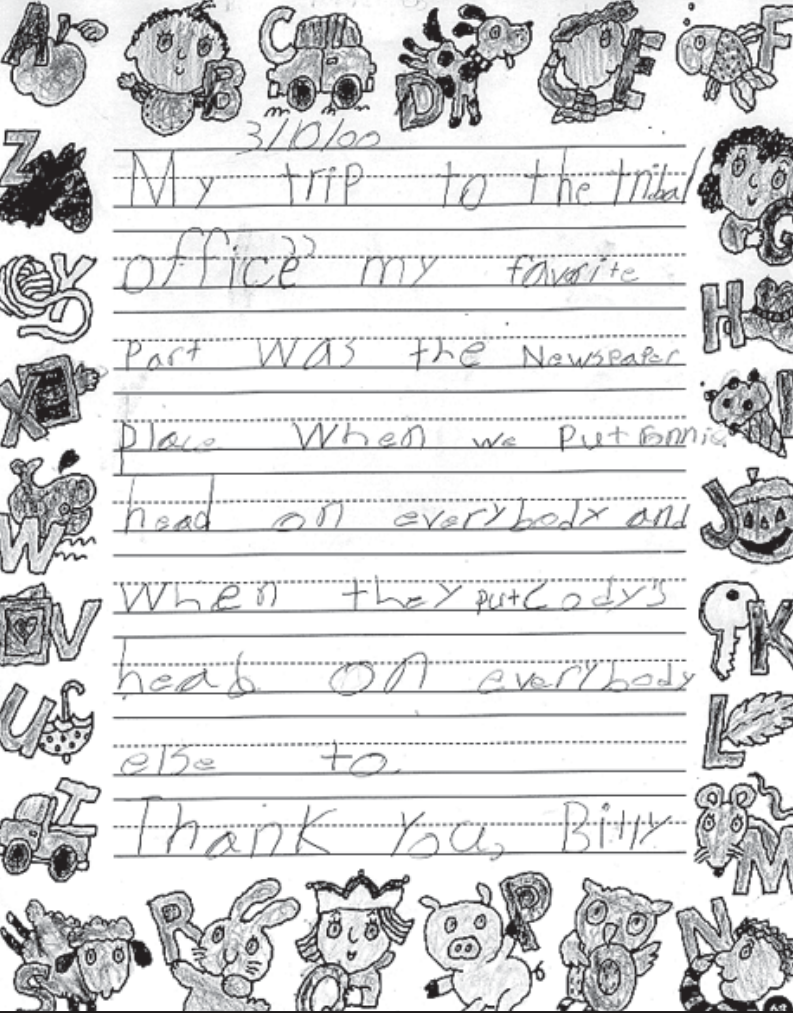 A
B
C
D
E
F
3/10/00
Z
My trip to the tribal
G
Y
office" my favorite
H
X
Part was the Newspaper
I
place When we Put Ronnie
W
head on everybody and
J
V
When they put Cody's
K
head on everybody
U
L
else to.
T
Thank you, Billy
M
S
R
Q
P
O
N